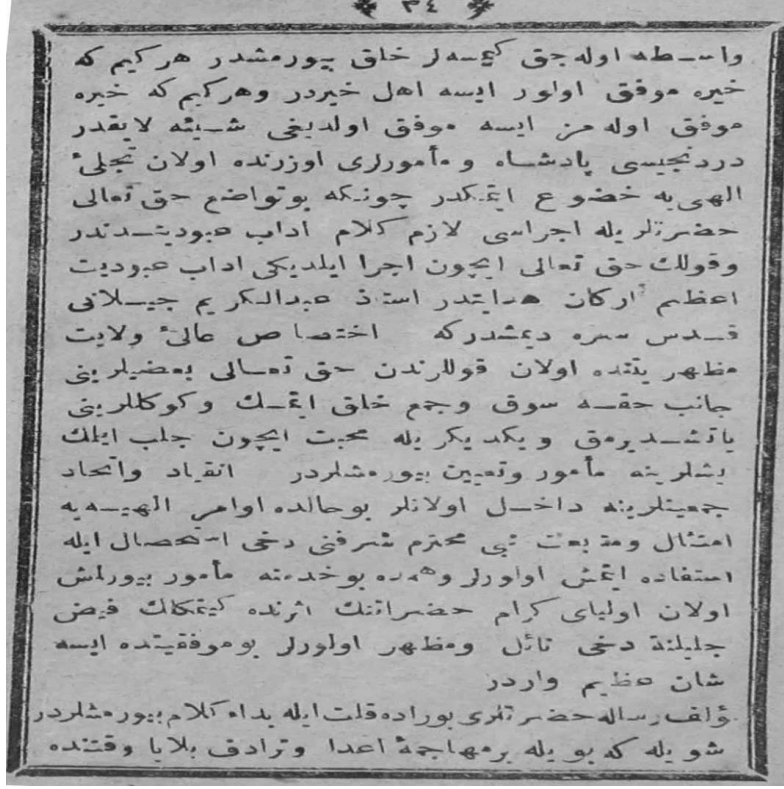 ٣٤
واسطه اوله جق كيمسه لر خلق بيورمشدر هركيم كه
خيره موفق اولور ايسه اهل خيردر وهركيم كه خيره
موفق اوله مز ايسه موفق اولديغى شيئه لايقدر
دردنجيسى پادشاه ومأمورلرى اوزرنده اولان تجلىء
الهى يه خضوع ايتمكدر چونكه بوتواضع حق تعالى
حضرتلريله اجراسى لازم كلام اداب عبوديتدندر
وقوللك حق تعالى ايچون اجرا ايلديكى اداب عبوديت
اعظم اركان هدايتدر استاذ عبدالكريم جيلانى
قدس سره ديمشدركه اختصاص عالىء ولايت
مظهريتنده اولان قوللرندن حق تعالى بعضيلرينى
جانب حقه سوق وجمع خلق ايتمك وكوكللرينى
ياتشديرمق ويكديكريله محبت ايچون جلب ايلمك
ايشلرينه مأمور وتعيين بيورمشلردر انقياد واتحاد
جمعيتلرينه داخل اولانلر بوحالده اوامر الهيه يه
امتثال ومتابعت نبى محترم شرفنى دخى استحصال ايله
استفاده ايتمش اولورلر وهمده بوخدمته مأمور بيورلمش
اولان اولياى كرام حضراتنك اثرنده كيتمكلك فيض
جليلنه دخى نائل ومظهر اولورلر بوموفقيتده ايسه
شان عظيم واردر
مؤلف رساله حضرتلرى بوراده قلت ايله بداء كلام بيورمشلردر
شويله كه بويله برمهاجمهٔ اعدا وترادف بلايا وقتنده